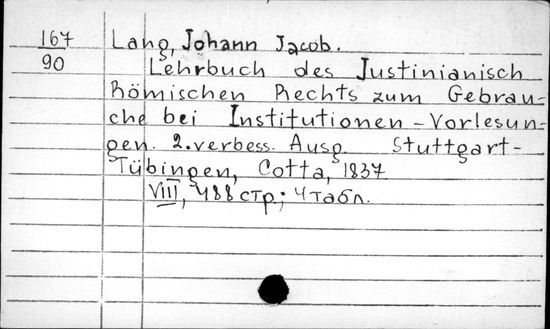 167 Lang, Johann Jacob.
90 Lehrbuch des Justinianisch
Römischen Rechts zum Gebrau-
che bei Institutionen-Vorlesun-
gen. 2.verbess. Ausg. Stuttgart-
Tübingen, Cotta, 1837
VIII, 488 стр.; 4 табл.